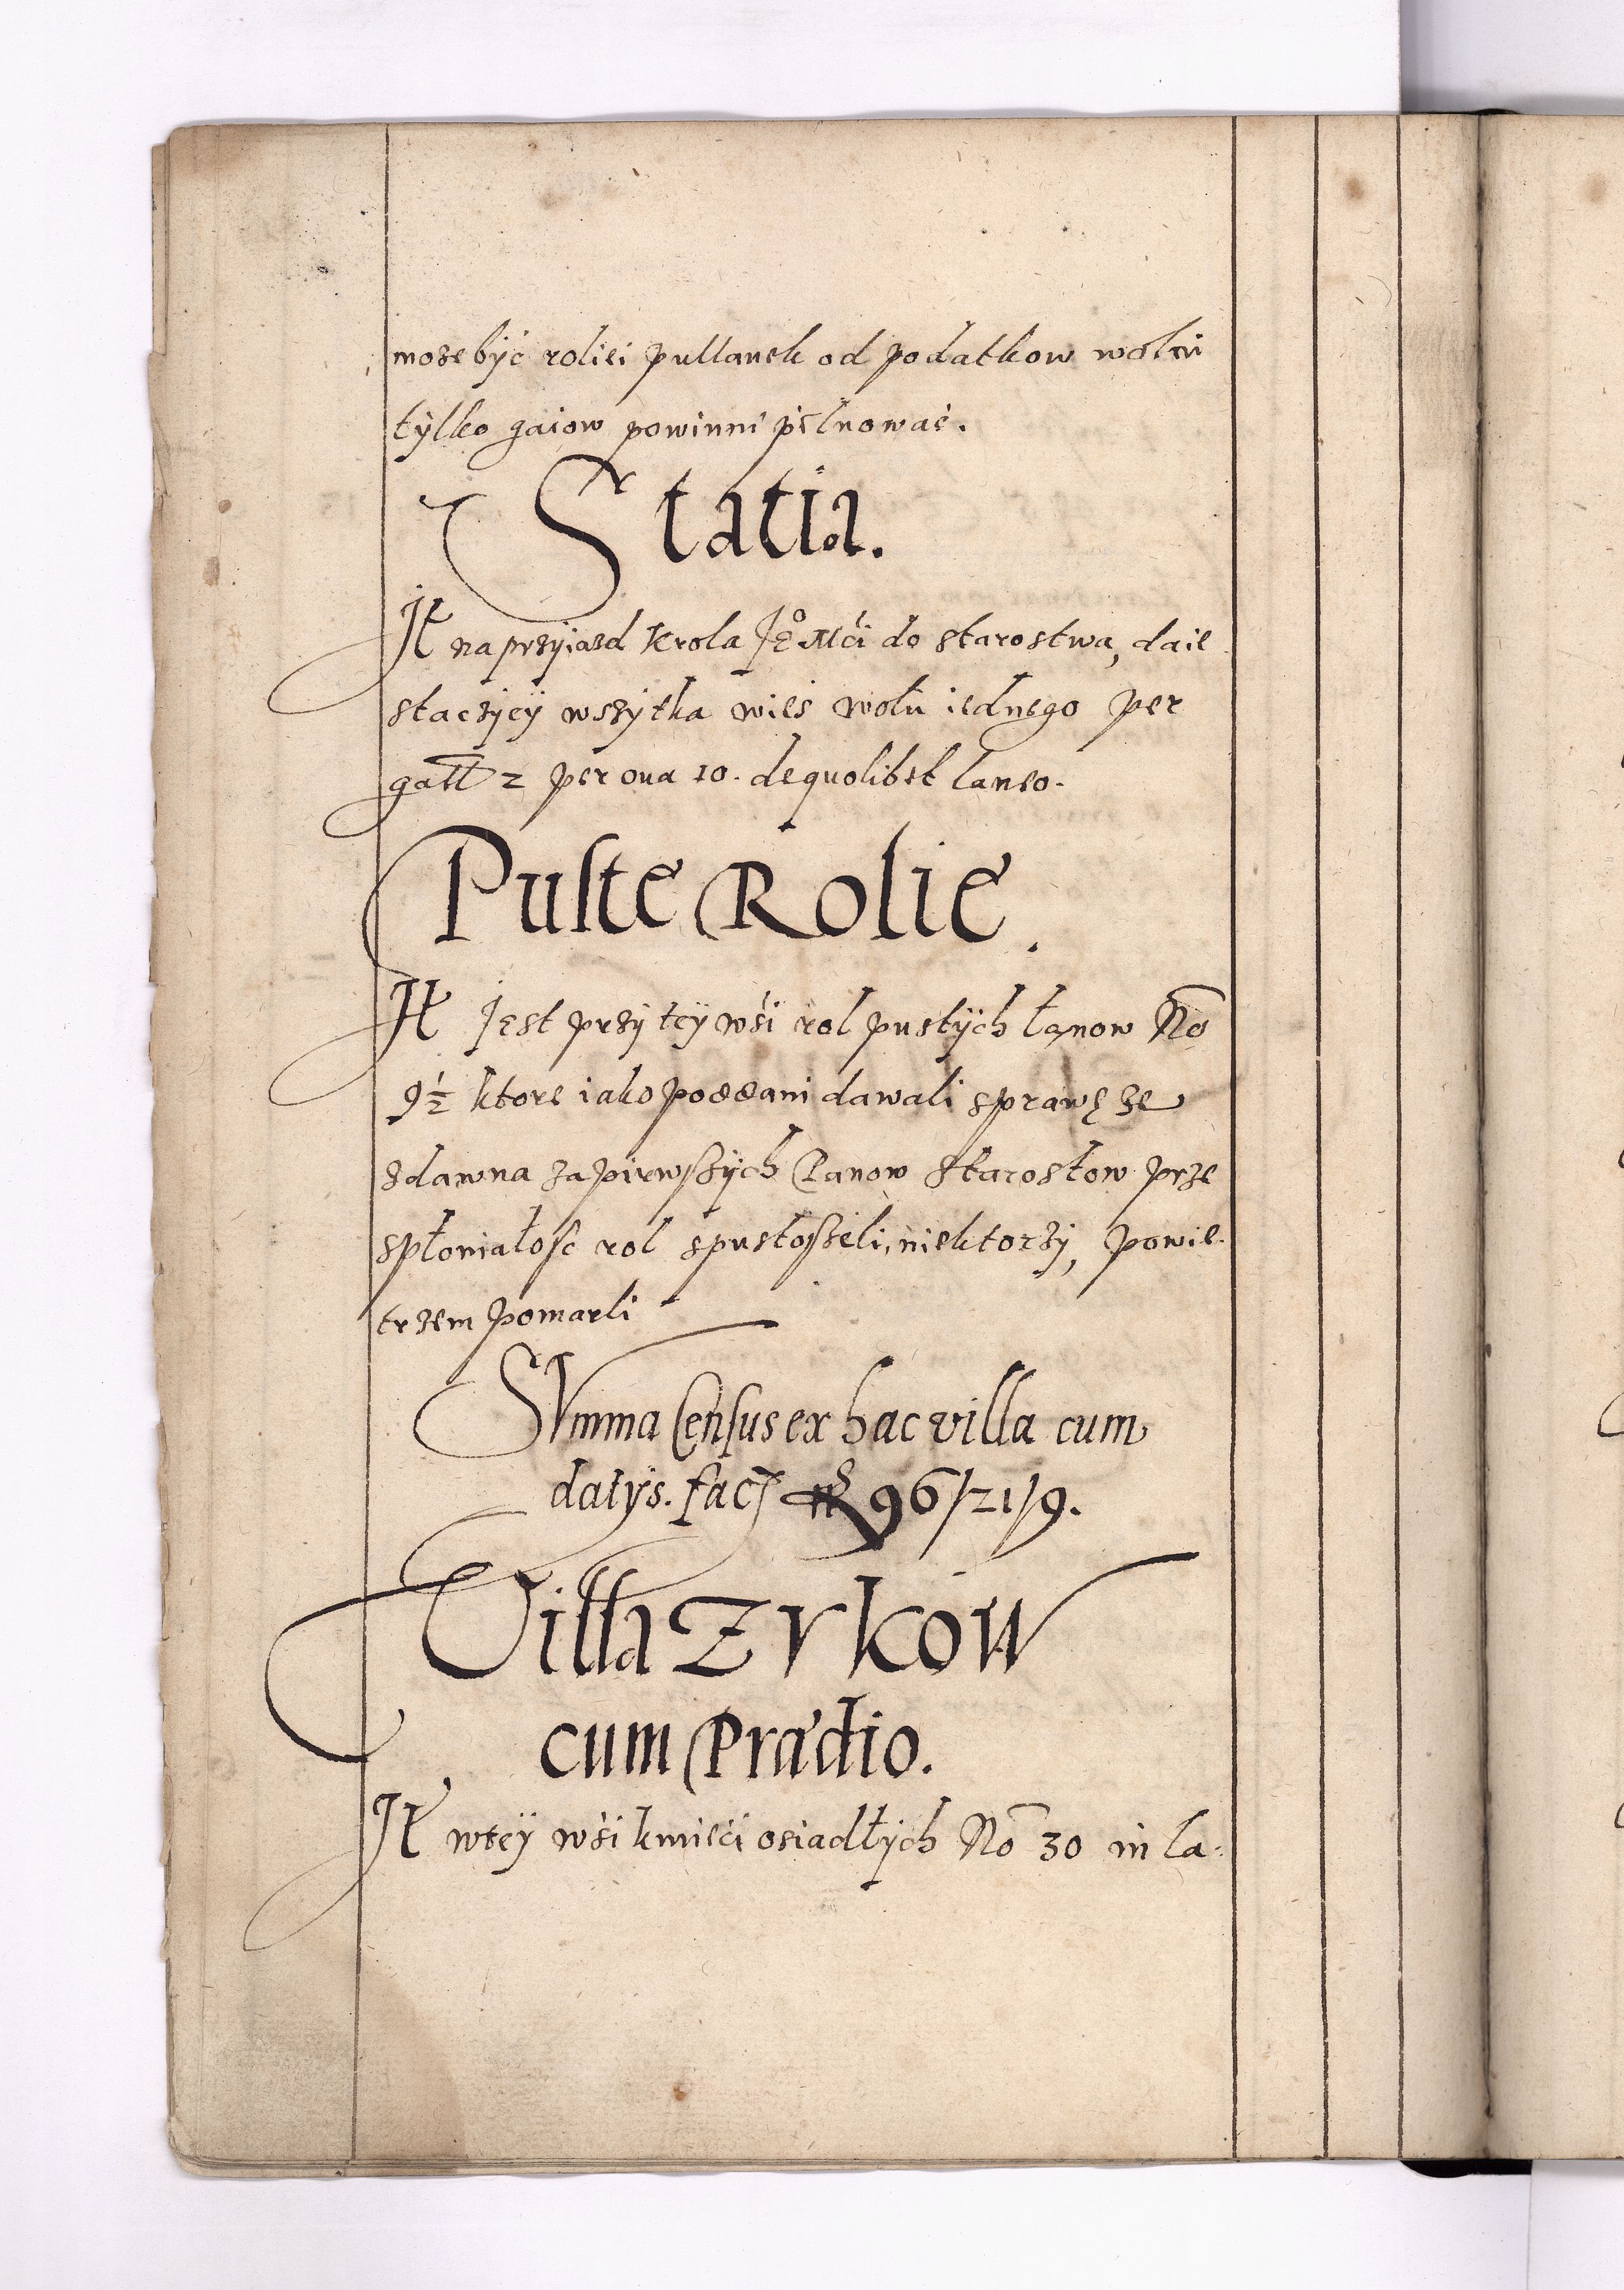 może być roliei pullanek od podatkow wolni
tylko gaiow powinni pilnować.
Statia.
It na przyiazd Krola Je⁰ Mći do starostwa, daie
staczycy wszytka wieś wołu iednego per
gall 2 per oua 10. de quolibet laneo.
Puste Rolie.
It Jest przy tey wśi rol pustych łanow No
9½ ktore iako poddani dawali sprawę że
zdawna za pirwszych Panow Starostow prze
spłoniałość rol spustoszeli, niektorzy, powie-
trzem pomarli
Summa Census ex hac villa cum
datys. fac 96/21/9.
Villa Zrkow
cum Prædio.
It w tey wśi kmieci osiadłych No 30 in la-